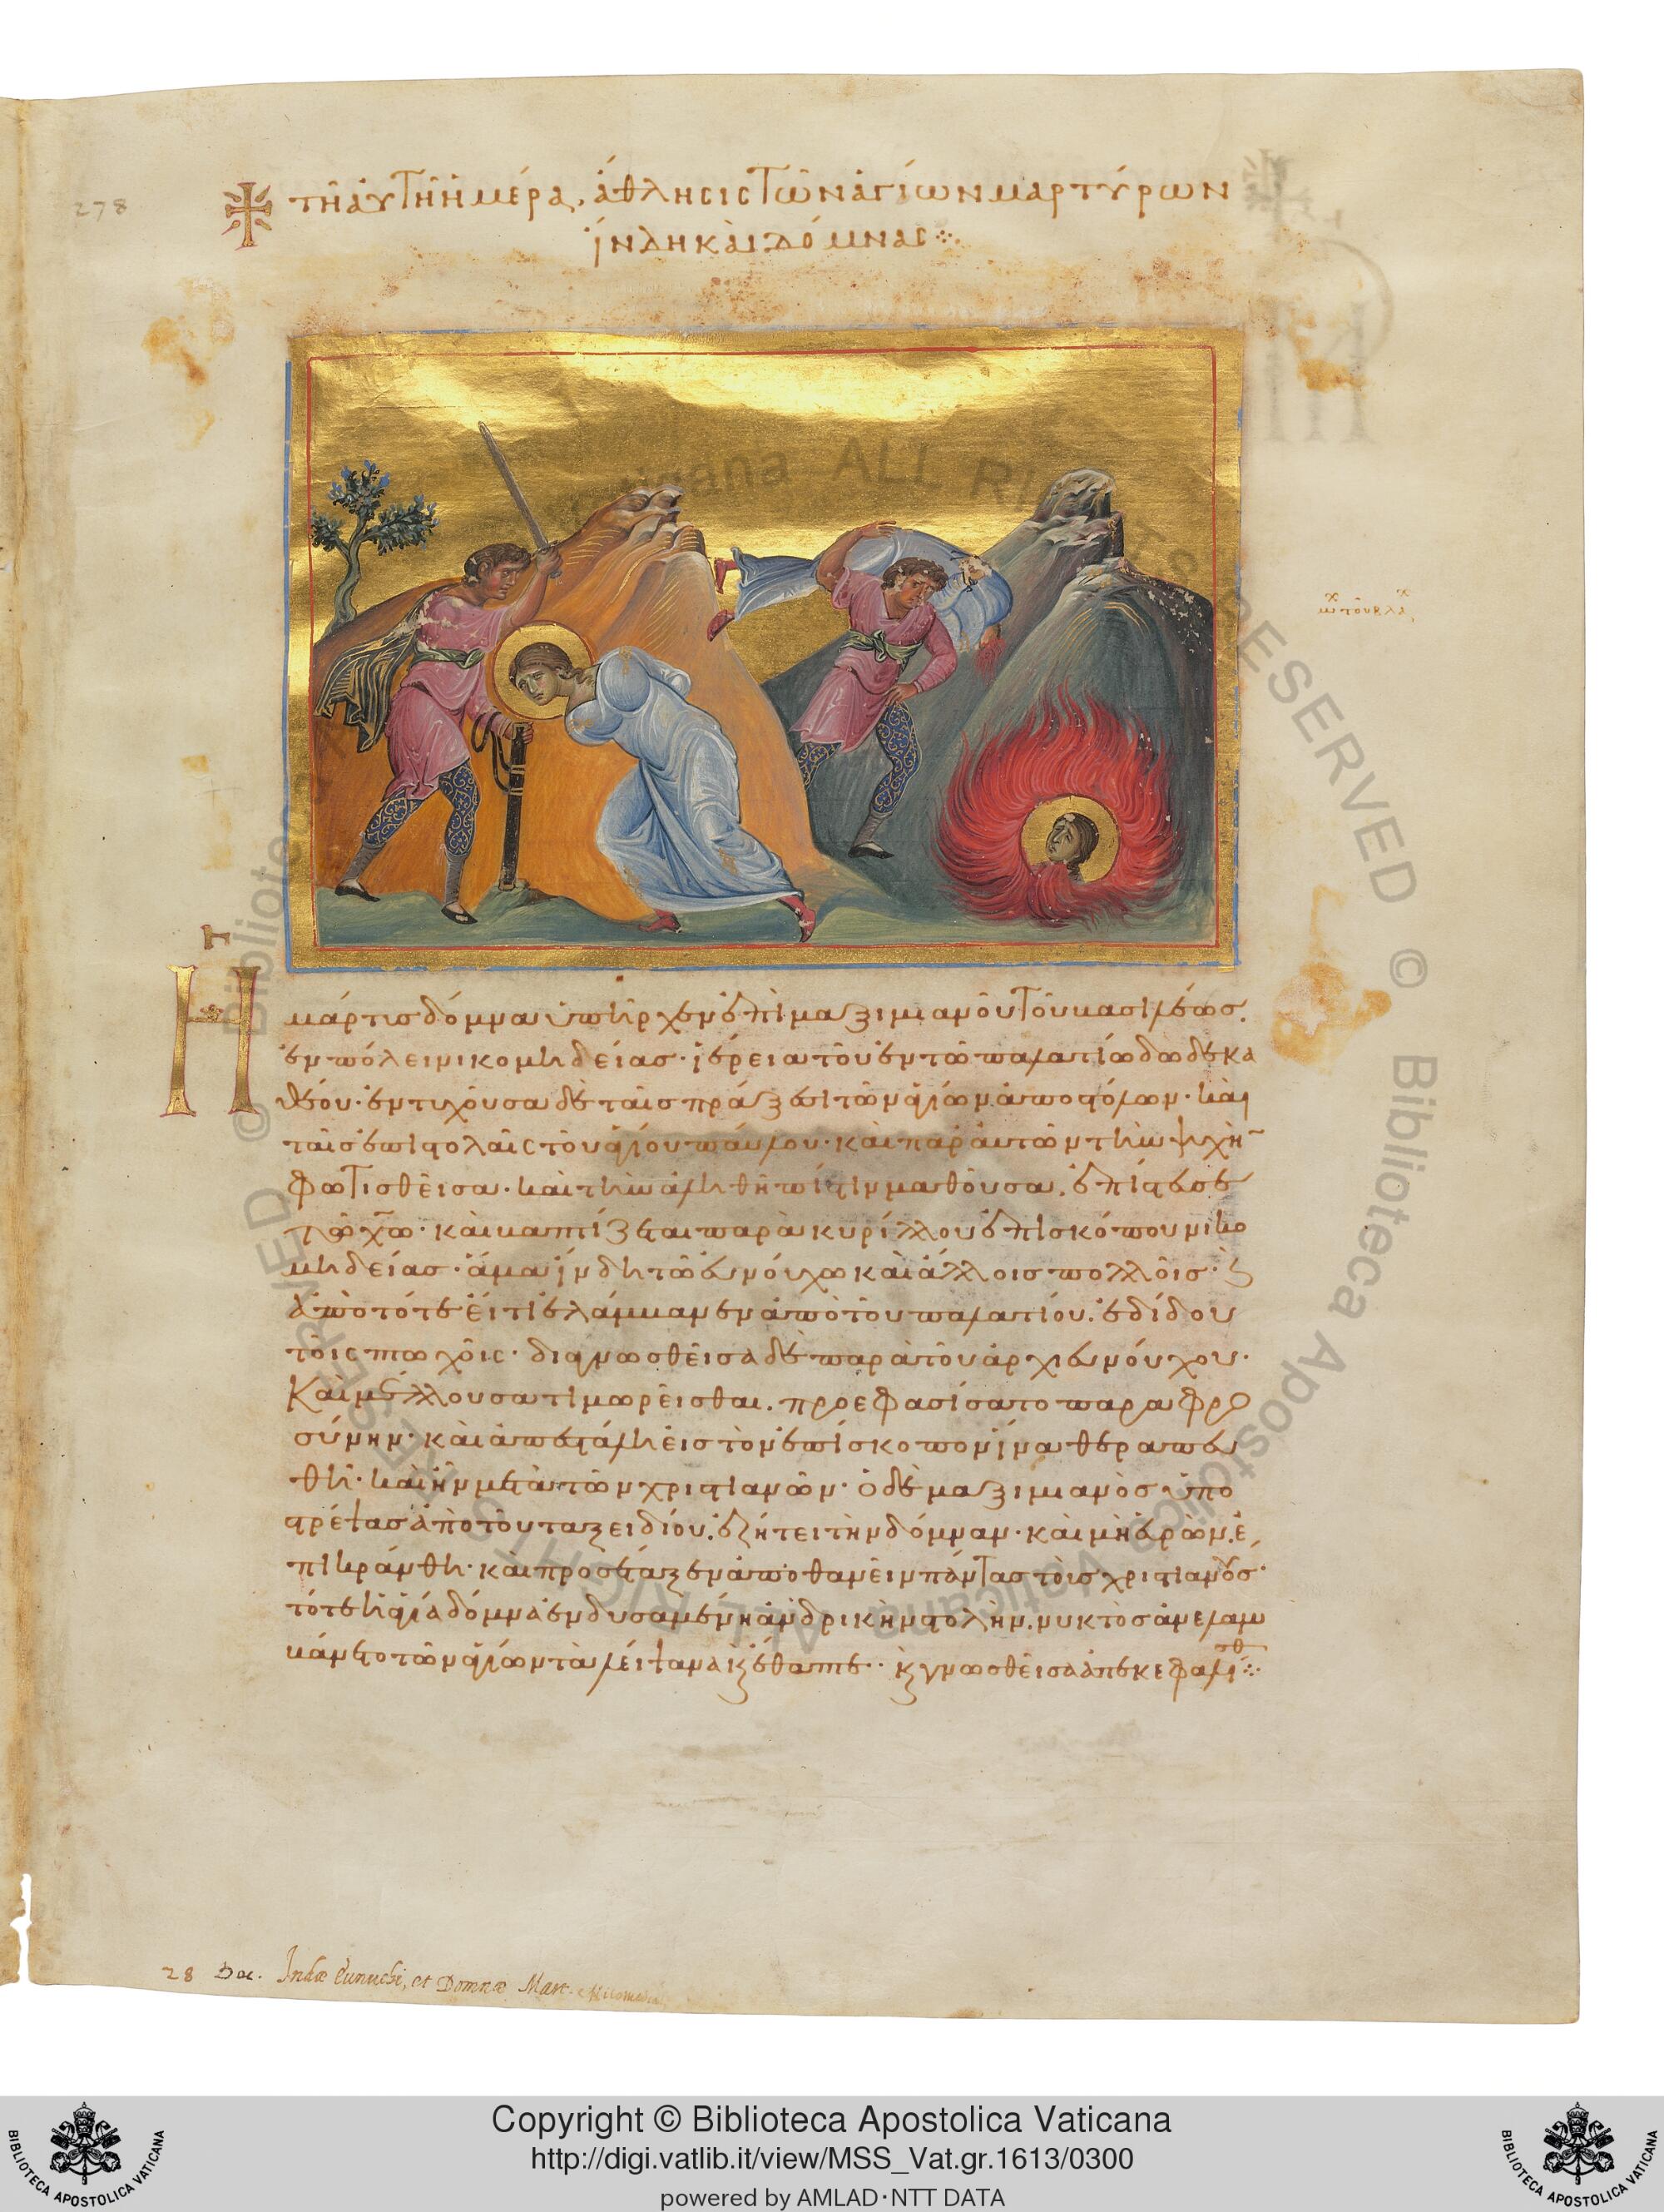 278
τῆ αὐτῆ ἡμέρα, ἄθλησις τῶν ἁγίων μαρτύρων
ἴνδη καὶ δόμνας
Η τ
μάρτις δόμνα ὑπῆρχεν ἐπὶ μαξιμιανοῦ τοῦ βασιλέως.
ἐν πόλει νικομηδείας· ἱέρεια τοῦ ἐν τῶ παλατίω δωδεκα
θέου· ἐντυχοῦσα δὲ ταῖς πράξεσι τῶν ἁγίων ἀποστόλων· καὶ
ταῖς ἐπιστολαῖς τοῦ ἁγίου παύλου· καὶ παρ' αὐτῶν τὴν ψυχὴ
φωτισθεῖσα· καὶ τὴν ἀληθῆ πίστιν μαθοῦσα, ἐπίστευσε
τῶ χω· καὶ βαπτίζεται παρὰ κυρίλλου ἐπισκόπου νικο
μηδείας· ἅμα ἴνδη τῶ εὐνούχω καὶ ἄλλοις πολλοῖς· ϗ
ἀπὸ τότε εἴ τι ἐλάμβανεν ἀπὸ τοῦ παλατίου. ἐδίδου
τοῖς πτωχοῖς· διαγνωσθεῖσα δὲ παρὰ τοῦ ἀρχιευνούχου·
Καὶ μέλλουσα τιμωρεῖσθαι. προεφασίσατο παραφρο
σύνην· καὶ ἀπεστάλη εἰς τὸν ἐπίσκοπον ἵνα θεραπευ
θῆ· καὶ ἦν μετὰ τῶν χριστιανῶν· ὁ δὲ μαξιμιανὸς ὑπο
στρέψας ἀπὸ τοῦ ταξειδίου. ἐζήτει τὴν δόμναν· καὶ μὴ εὑρὼν. ἐ
πικράνθη· καὶ προσέταξεν ἀποθανεῖν πάντας τοὺς χριστιανούς·
τότε ἡ ἁγία δόμνα ἐνδυσαμένη ἀνδρικὴν στολὴν. νυκτὸς ἀνελαμ
βάνετο τῶν ἁγίων τὰ λείψανα ϗ ἔθαπτε·· ϗ γνωσθεῖσα ἀπεκεφαλίσθ
28 Dec. Indæ Eunuchi, et Domnæ Mart. Nicomediæ
© Biblioteca Apostolica Vaticana ALL RIGHTS RESERVED
Copyright © Biblioteca Apostolica Vaticana
http://digi.vatlib.it/view/MSS_Vat.gr.1613/0300
powered by AMLAD·NTT DATA
BIBLIOTECA APOSTOLICA VATICANA
BIBLIOTECA APOSTOLICA VATICANA